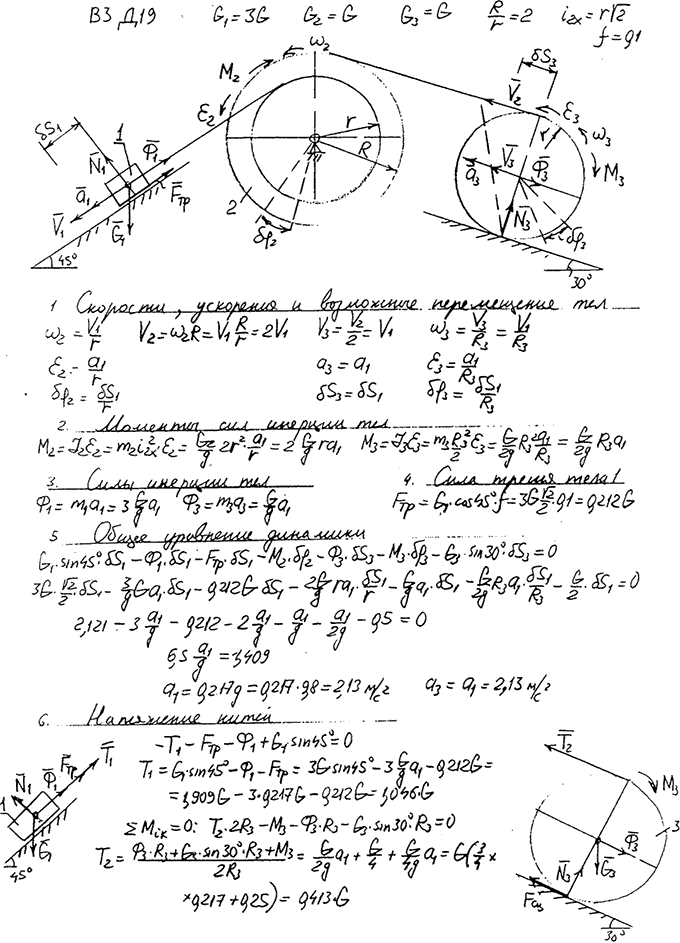 В3 Д19 G₁=3G G₂=G G₃=G R/r=2 i₂ₓ=r√2
f=0,1
ω₂
M₂
ε₂
δS₁
1
N̄₁
Φ̄₁
ā₁
F̄тр
V̄₁
Ḡ₁
45°
2
r
R
δφ₂
δS₃
V̄₂
ε₃
r
ω₃
M₃
V̄₃
ā₃
Φ̄₃
N̄₃
δφ₃
30°
1 Скорости, ускорения и возможные перемещение тел
ω₂=V₁/r V₂=ω₂R=V₁R/r=2V₁ V₃=V₂/2=V₁ ω₃=V₃/R₃=V₁/R₃
ε₂=a₁/r a₃=a₁ ε₃=a₁/R₃
δφ₂=δS₁/r δS₃=δS₁ δφ₃=δS₁/R₃
2. Моменты сил инерции тел
M₂=J₂ε₂=m₂i₂ₓ²·ε₂=G₂/g 2r²·a₁/r=2 G/g ra₁ M₃=J₃ε₃=m₃R₃²/2 ε₃=G/2g R₃² a₁/R₃=G/2g R₃a₁
3. Силы инерции тел 4. Сила трения тела 1
Φ₁=m₁a₁=3 G/g a₁ Φ₃=m₃a₃=G/g a₁ Fтр=G₁·cos45°·f=3G √2/2·0,1=0,212G
5 Общее уравнение динамики
G₁·sin45°·δS₁−Φ₁·δS₁−Fтр·δS₁−M₂·δφ₂−Φ₃·δS₃−M₃·δφ₃−G₃·sin30°·δS₃=0
3G·√2/2·δS₁−3/g Ga₁·δS₁−0,212G·δS₁−2G/g ra₁·δS₁/r−G/g a₁·δS₁−G/2g R₃a₁·δS₁/R₃−G/2·δS₁=0
2,121−3 a₁/g−0,212−2 a₁/g−a₁/g−a₁/2g−0,5=0
6,5 a₁/g=1,409
a₁=0,217g=0,217·9,8=2,13 м/с² a₃=a₁=2,13 м/с²
6. Натяжение нитей
−T₁−Fтр−Φ₁+G₁sin45°=0
T₁=G₁sin45°−Φ₁−Fтр=3Gsin45°−3 G/g a₁−0,212G=
=1,909G−3·0,217G−0,212G=1,046·G
ΣMᵢₖ=0: T₂·2R₃−M₃−Φ₃·R₃−G₃·sin30°·R₃=0
T₂=(Φ₃·R₃+G₃·sin30°·R₃+M₃)/2R₃=G/2g a₁+G/4+G/4g a₁=G(3/4×
×0,217+0,25)=0,413·G
T̄₁
F̄тр
Φ̄₁
N̄₁
1
Ḡ₁
45°
T̄₂
M₃
Φ̄₃
3
N̄₃
Ḡ₃
30°